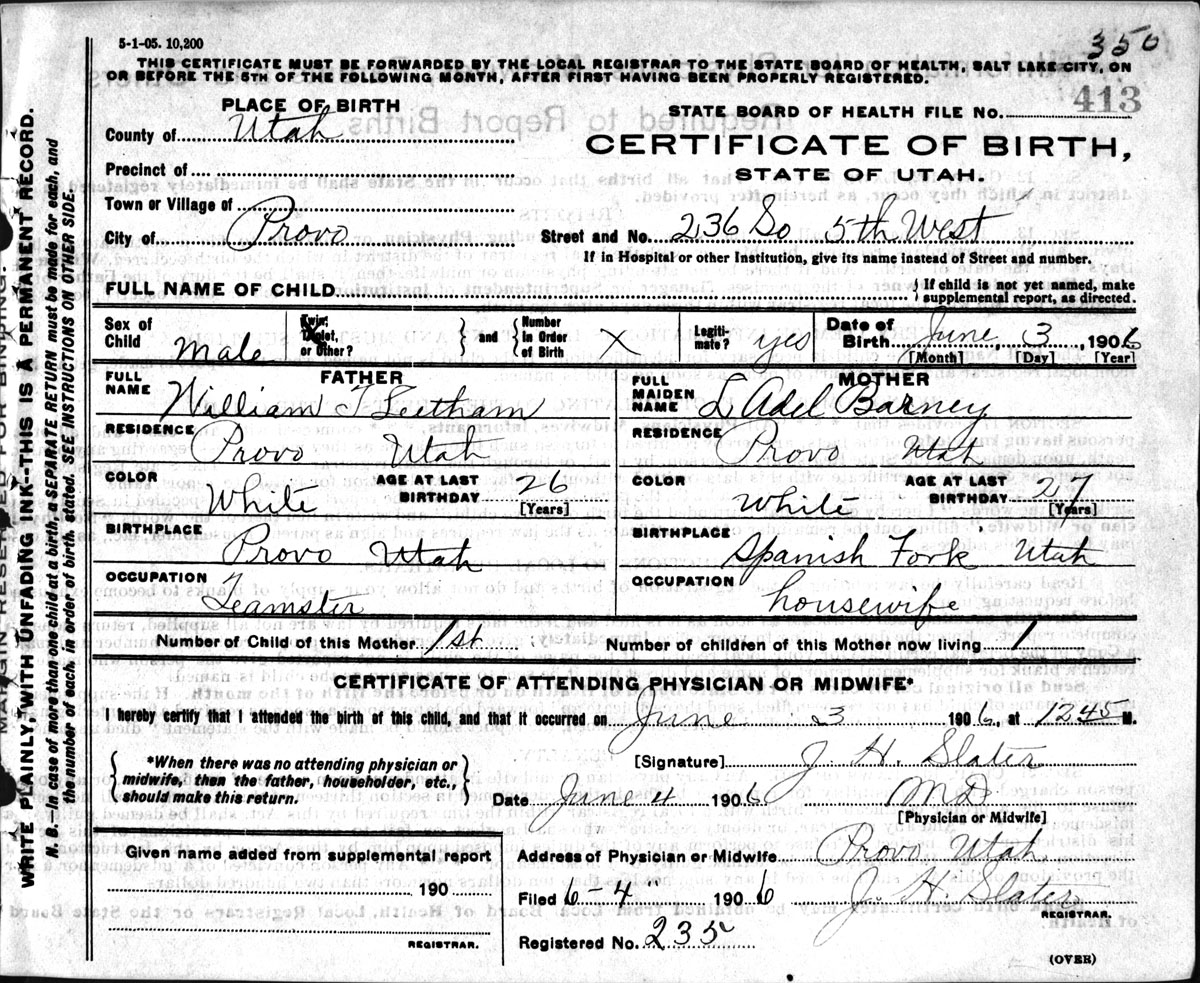 5-1-05. 10,200
350
THIS CERTIFICATE MUST BE FORWARDED BY THE LOCAL REGISTRAR TO THE STATE BOARD OF HEALTH, SALT LAKE CITY, ON
OR BEFORE THE 5TH OF THE FOLLOWING MONTH, AFTER FIRST HAVING BEEN PROPERLY REGISTERED.
PLACE OF BIRTH
STATE BOARD OF HEALTH FILE No. 413
County of Utah
CERTIFICATE OF BIRTH,
Precinct of
STATE OF UTAH.
Town or Village of
City of Provo Street and No. 236 So 5th West
If in Hospital or other Institution, give its name instead of Street and number.
FULL NAME OF CHILD { If child is not yet named, make
supplemental report, as directed.
Sex of Child Male
Twin, Triplet, or Other? X
and
Number in Order of Birth X
Legiti-mate? yes
Date of Birth June, 3 1906
[Month] [Day] [Year]
FATHER
FULL NAME William T Leetham
MOTHER
FULL MAIDEN NAME L Adel Barney
RESIDENCE Provo Utah
RESIDENCE Provo Utah
COLOR White AGE AT LAST BIRTHDAY 26 [Years]
COLOR White AGE AT LAST BIRTHDAY 27 [Years]
BIRTHPLACE Provo Utah
BIRTHPLACE Spanish Fork Utah
OCCUPATION Teamster
OCCUPATION housewife
Number of Child of this Mother 1st Number of children of this Mother now living 1
CERTIFICATE OF ATTENDING PHYSICIAN OR MIDWIFE*
I hereby certify that I attended the birth of this child, and that it occurred on June 3 1906, at 1245 M.
*When there was no attending physician or
midwife, then the father, householder, etc.,
should make this return.
[Signature] J. H. Slater
Date June 4 1906 MD
[Physician or Midwife]
Given name added from supplemental report
190
REGISTRAR.
Address of Physician or Midwife Provo Utah,
Filed 6-4" 1906 J. H. Slater
REGISTRAR.
Registered No. 235
(OVER)
MARGIN RESERVED FOR BINDING.
WRITE PLAINLY, WITH UNFADING INK--THIS IS A PERMANENT RECORD.
N. B.--In case of more than one child at a birth, a SEPARATE RETURN must be made for each, and
the number of each, in order of birth, stated. SEE INSTRUCTIONS ON OTHER SIDE.